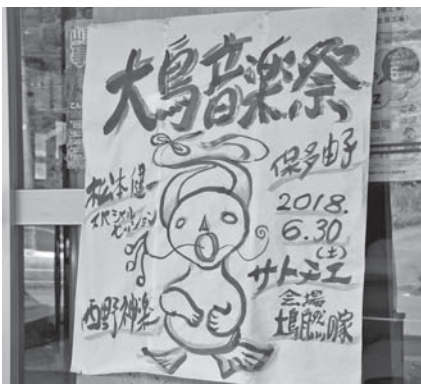 大鳥音楽祭
保多由子
松本健一
スペシャル
セッション
2018.
6.30
(土)
サトモエ
西野神楽
会場